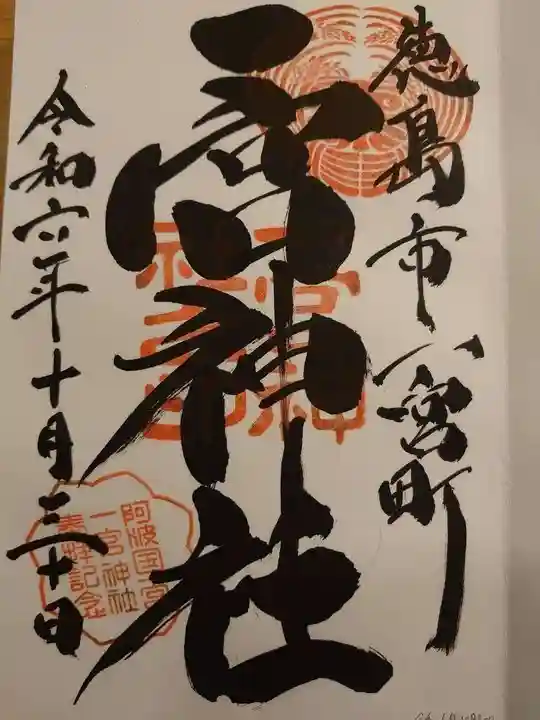 徳島市一宮町
一宮神社
令和六年十月三十日
一宮神社之印
阿波国一宮
一宮神社
奉拝記念